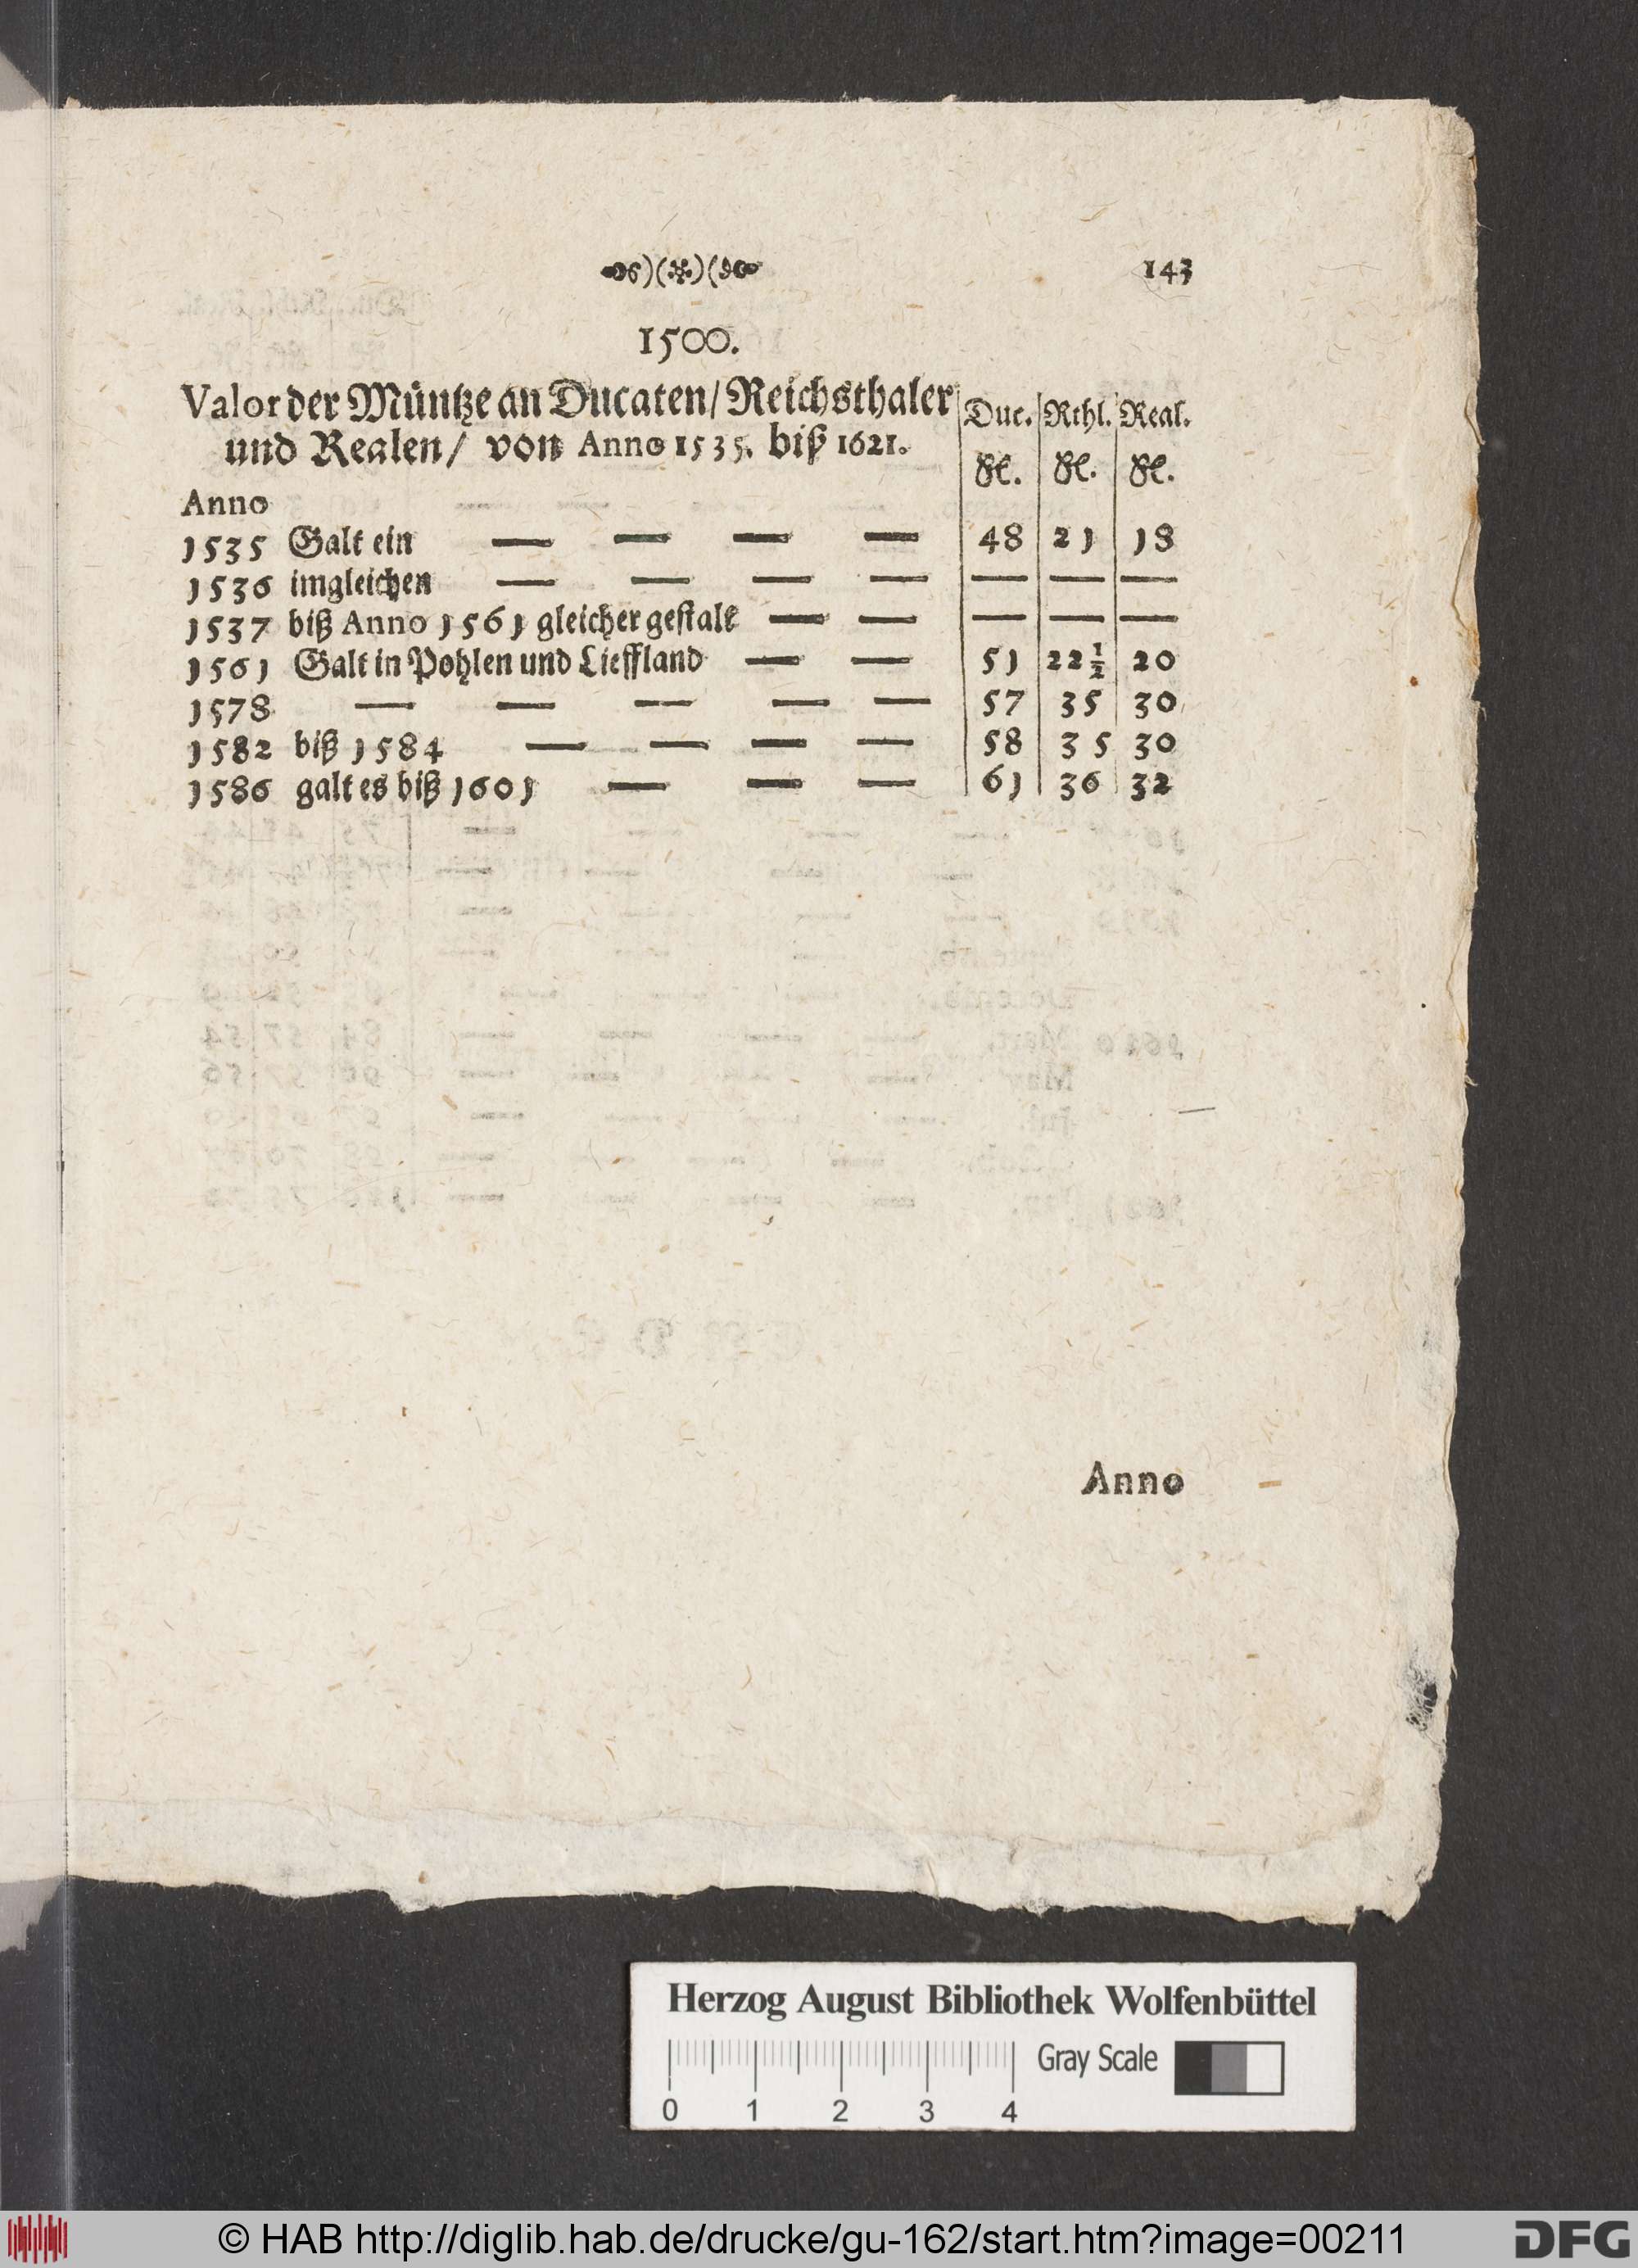 )(*)( 143
1500.
Valor der Müntze an Ducaten/ Reichsthaler Duc. Rthl. Real.
und Realen/ von Anno 1535. biß 1621. Gl. Gl. Gl.
Anno
1535 Galt ein — — — — 48 21 18
1536 imgleichen — — — — — — —
1537 biß Anno 1561 gleicher gestalt — — — — —
1561 Galt in Pohlen und Lieffland — — 51 22 1/2 20
1578 — — — — — 57 35 30
1582 biß 1584 — — — — 58 35 30
1586 galt es biß 1601 — — — 61 36 32
Anno
Herzog August Bibliothek Wolfenbüttel
Gray Scale
0 1 2 3 4
© HAB http://diglib.hab.de/drucke/gu-162/start.htm?image=00211 DFG